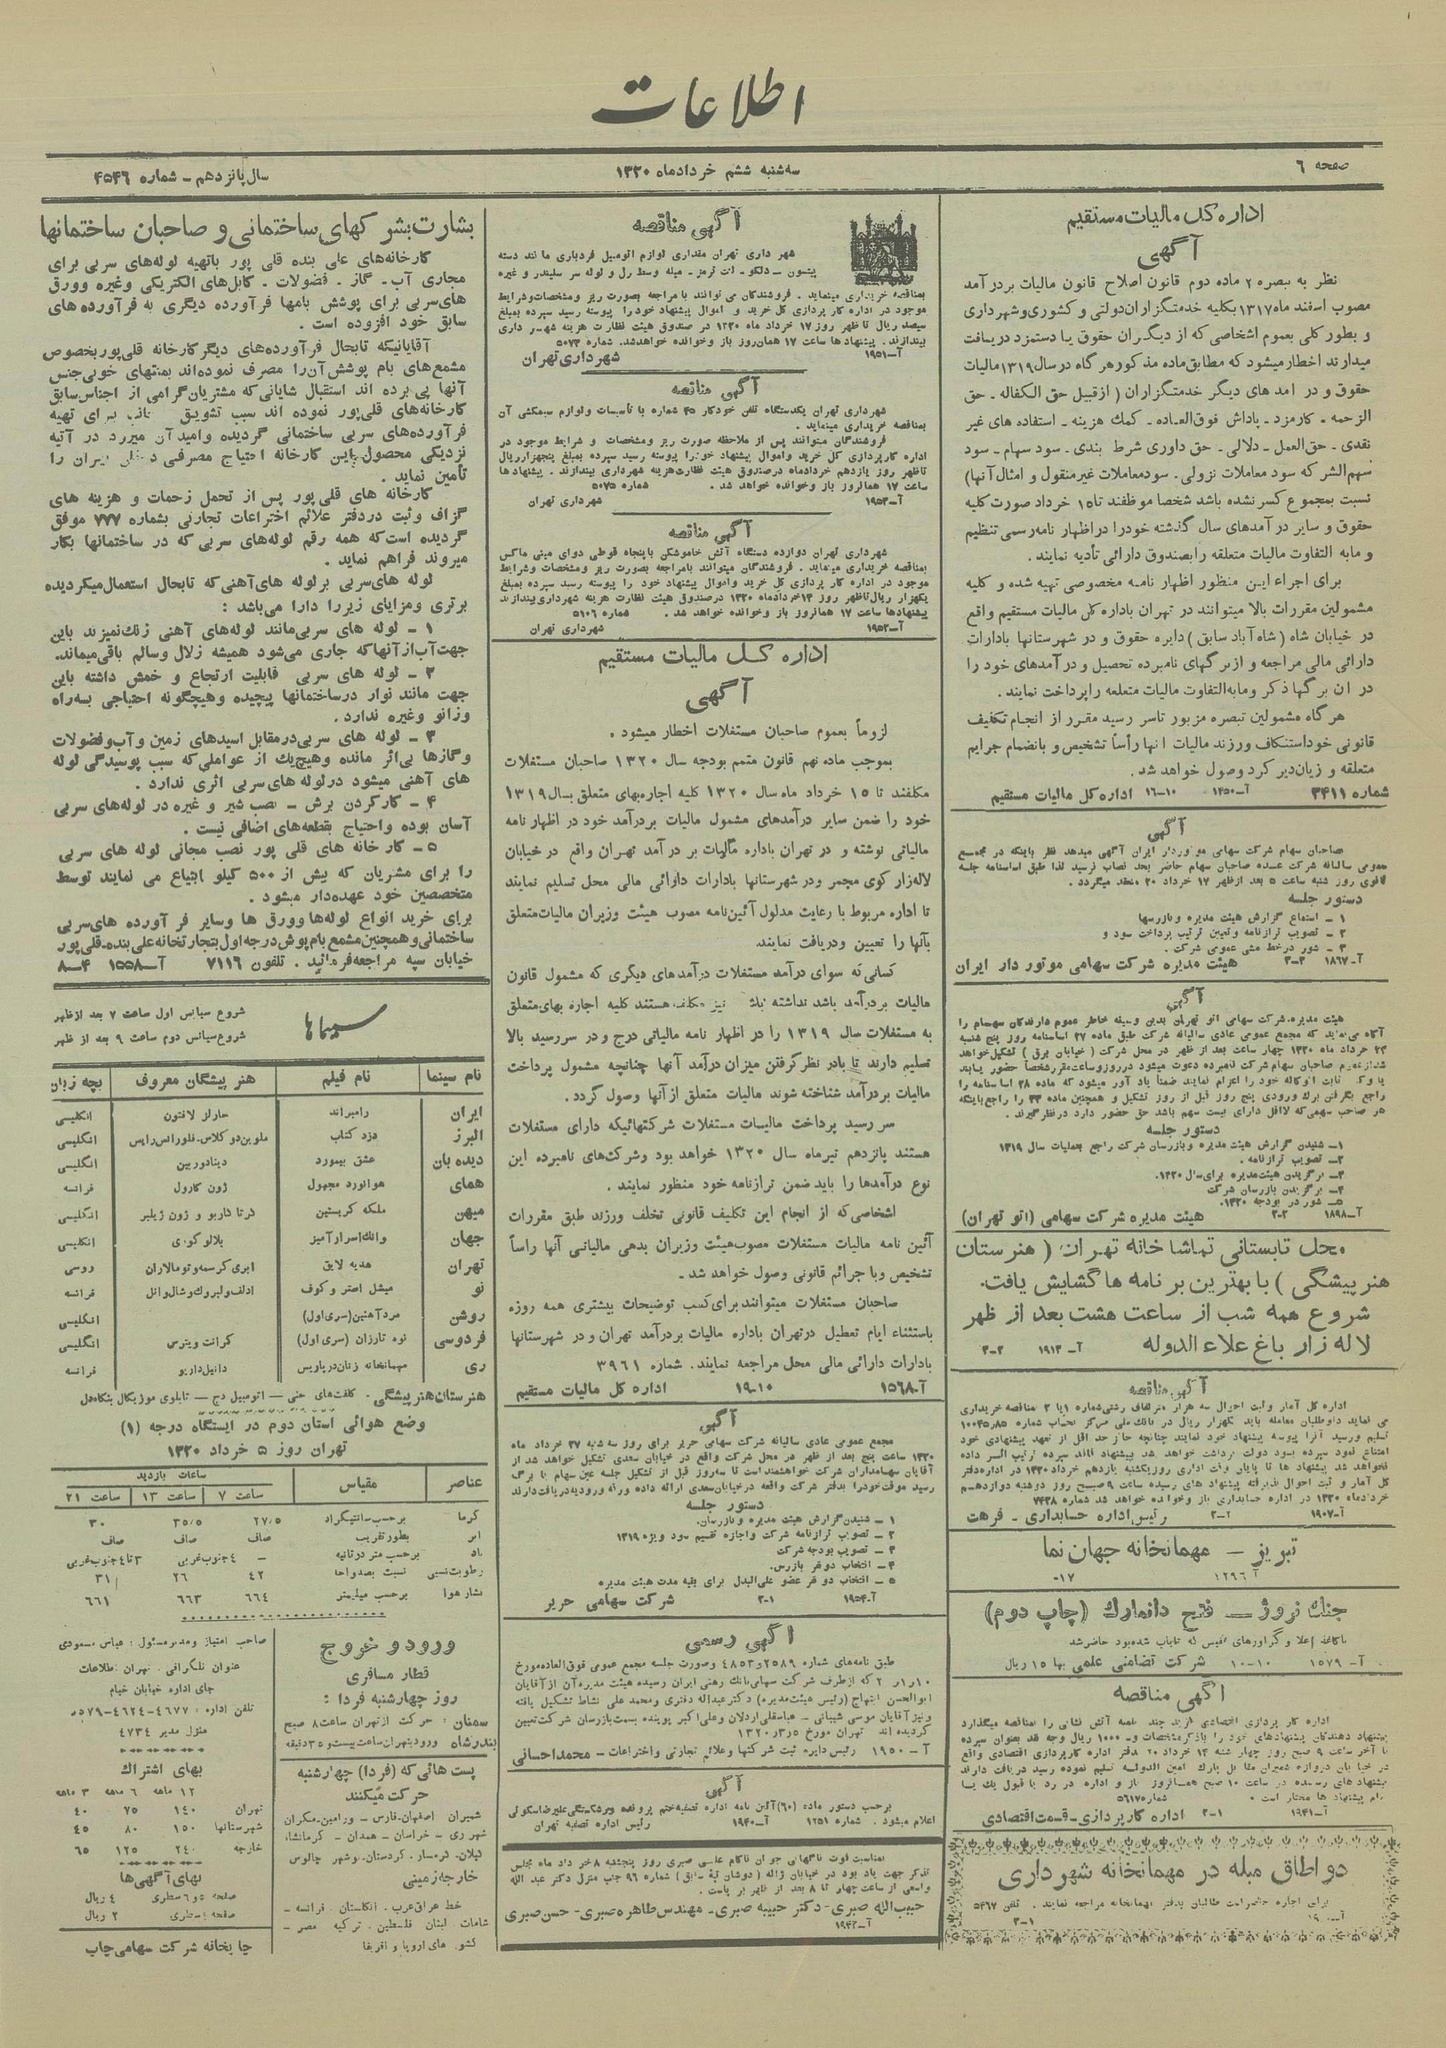 اطلاعات
صفحه ۶
سه‌شنبه ششم خردادماه ۱۳۲۰
سال پانزدهم - شماره ۴۵۴۶
اداره کل مالیات مستقیم
آگهی
نظر به تبصره ۲ ماده دوم قانون اصلاح قانون مالیات بر درآمد
مصوب اسفند ماه ۱۳۱۷ بکلیه خدمتگزاران دولتی و کشوری و شهرداری
و بطور کلی بعموم اشخاصی که از دیگران حقوق یا دستمزد دریافت
میدارند اخطار میشود که مطابق ماده مذکور هر گاه در سال ۱۳۱۹ مالیات
حقوق و در امد های دیگر خدمتگزاران ( از قبیل حق الکفاله - حق
الزحمه - کارمزد - پاداش فوق‌العاده - کمك هزینه - استفاده های غیر
نقدی - حق‌العمل - دلالی - حق داوری شرط بندی - سود سهام - سود
سهم‌الشرکه سود معاملات نزولی - سود معاملات غیر منقول و امثال آنها)
نسبت بمجموع کسر نشده باشد شخصا موظفند تا ۱۵ خرداد صورت کلیه
حقوق و سایر درآمدهای سال گذشته خود را در اظهار نامه رسمی تنظیم
و مابه التفاوت مالیات متعلقه را بصندوق دارائی تأدیه نمایند.
برای اجراء این منظور اظهار نامه مخصوصی تهیه شده و کلیه
مشمولین مقررات بالا میتوانند در تهران باداره کل مالیات مستقیم واقع
در خیابان شاه (شاه آباد سابق) دایره حقوق و در شهرستانها بادارات
دارائی مالی مراجعه و از برگهای نامبرده تحصیل و درآمدهای خود را
در ان برگها ذکر و مابه‌التفاوت مالیات متعلقه را پرداخت نمایند.
هر گاه مشمولین تبصره مزبور تا سر رسید مقرر از انجام تکلیف
قانونی خود استنکاف ورزند مالیات انها رأساً تشخیص و بانضمام جرایم
متعلقه و زیان دیر کرد وصول خواهد شد.
شماره ۳۴۱۱ آ-۱۴۵۰ ۱۰-۱۶ اداره کل مالیات مستقیم
آگهی
صاحبان سهام شرکت سهامی موتوردار ایران آگهی میدهد نظر باینکه در مجمع
عمومی سالیانه شرکت عده صاحبان سهام حاضر بحد نصاب نرسید لذا طبق اساسنامه جلسه
ثانوی روز شنبه ساعت ۵ بعد از ظهر ۱۷ خرداد ۲۰ منعقد میگردد.
دستور جلسه
۱ - استماع گزارش هیئت مدیره و بازرسها
۲ - تصویب ترازنامه و تعیین ترتیب پرداخت سود و
۳ - شور در خط مشی عمومی شرکت.
آ-۱۸۶۷ ۳-۳ هیئت مدیره شرکت سهامی موتور دار ایران
آگهی
هیئت مدیره شرکت سهامی اتو تهران بدین وسیله خاطر عموم دارندگان سهام را
آگاه می‌نماید که مجمع عمومی عادی سالیانه شرکت طبق ماده ۲۷ اساسنامه روز پنج شنبه
۲۲ خرداد ماه ۱۳۲۰ چهار ساعت بعد از ظهر در محل شرکت ( خیابان برق ) تشکیل خواهد
راجع بگرفتن برك ورودی پنج روز قبل از روز تشکیل و همچنین ماده ۳۳ را راجع باینکه
هر صاحب سهمی که لااقل دارای بیست سهم باشد حق حضور دارد در نظر گیرند.
دستور جلسه
۱- شنیدن گزارش هیئت مدیره و بازرسان شرکت راجع بعملیات سال ۱۳۱۹
۲- تصویب ترازنامه.
۳- برگزیدن هیئت مدیره برای سال ۱۳۲۰.
۴- برگزیدن بازرسان شرکت
۵- شور در بودجه ۱۳۲۰.
آ-۱۸۹۸ ۲-۳ هیئت مدیره شرکت سهامی (اتو تهران)
محل تابستانی تماشا خانه تهران ( هنرستان
هنر پیشگی ) با بهترین برنامه ها گشایش یافت.
شروع همه شب از ساعت هشت بعد از ظهر
لاله زار باغ علاء الدوله آ- ۱۹۱۳ ۲-۳
آگهی مناقصه
افتتاح نخواهد شد پیشنهاد ها تا پایان وقت اداری روز یکشنبه یازدهم خرداد ۱۳۲۰ در اداره دفتر
کل آمار و ثبت احوال پذیرفته پیشنهاد های رسیده ساعت ۹ صبح روز دوشنبه دوازدهم
خرداد ماه ۱۳۲۰ در اداره حسابداری باز و خوانده خواهد شد شماره ۷۴۳۸
آ-۱۹۰۷ ۲-۲ رئیس اداره حسابداری - فرهت
تبریز - مهمانخانه جهان نما
آ ۱۲۹۶ ۱۷-
جنك نروژ - فتح دانمارك (چاپ دوم)
باکاغذ اعلا و گراورهای نفیس که نایاب شده بود حاضر شد
آ- ۱۵۷۹ ۱۰-۱۰ شرکت تضامنی علمی بها ۱۵ ریال
آگهی مناقصه
آ-۱۹۴۱ ۱-۲ اداره کارپردازی - قسمت اقتصادی
دو اطاق مبله در مهمانخانه شهرداری
آگهی مناقصه
شهر داری تهران مقداری لوازم اتومبیل فرد باری مانند دسته
پیستون - دلکو - لنت ترمز - میله وسط رل و لوله سر سلیندر و غیره
بمناقصه خریداری مینماید. فروشندگان می توانند با مراجعه بصورت ریز و مشخصات و شرایط
موجود در اداره کار پردازی کل خرید و اموال پیشنهاد خود را پیوسته رسید سپرده بمبلغ
سیصد ریال تا ظهر روز ۱۷ خرداد ماه ۱۳۲۰ در صندوق هیئت نظارت هزینه شهرداری
بیندازند. پیشنهاد ها ساعت ۱۷ همان روز باز و خوانده خواهد شد. شماره ۵۰۷۳
آ-۱۹۵۱ شهرداری تهران
آگهی مناقصه
شهرداری تهران یکدستگاه تلفن خودکار ۴۵ شماره با تأسیسات و لوازم سیمکشی آن
بمناقصه خریداری مینماید.
فروشندگان میتوانند پس از ملاحظه صورت ریز و مشخصات و شرایط موجود در
اداره کارپردازی کل خرید و اموال پیشنهاد خود را پیوسته رسید سپرده بمبلغ پنجهزار ریال
تا ظهر روز یازدهم خرداد ماه در صندوق هیئت نظارت هزینه شهرداری بیندازند. پیشنهادها
ساعت ۱۷ همانروز باز و خوانده خواهد شد. شماره ۵۰۷۵
آ-۱۹۵۲ شهرداری تهران
آگهی مناقصه
شهرداری تهران دوازده دستگاه آتش خاموشکن با پنجاه قوطی دوای مینی ماکس
بمناقصه خریداری مینماید. فروشندگان میتوانند بامراجعه بصورت ریز و مشخصات و شرایط
موجود در اداره کار پردازی کل خرید و اموال پیشنهاد خود را پیوسته رسید سپرده بمبلغ
یکهزار ریال تا ظهر روز ۱۳ خرداد ماه ۱۳۲۰ در صندوق هیئت نظارت هزینه شهرداری بیندازند
پیشنهادها ساعت ۱۷ همانروز باز و خوانده خواهد شد. شماره ۵۱۰۶
آ-۱۹۵۳ شهرداری تهران
اداره کل مالیات مستقیم
آگهی
لزوماً بعموم صاحبان مستغلات اخطار میشود.
بموجب ماده نهم قانون متمم بودجه سال ۱۳۲۰ صاحبان مستغلات
مکلفند تا ۱۵ خرداد ماه سال ۱۳۲۰ کلیه اجاره‌بهای متعلق بسال ۱۳۱۹
خود را ضمن سایر درآمدهای مشمول مالیات بر درآمد خود در اظهار نامه
مالیاتی نوشته و در تهران باداره مالیات بر در آمد تهران واقع در خیابان
لاله‌زار کوی مجمر و در شهرستانها بادارات دارائی مالی محل تسلیم نمایند
تا اداره مربوط با رعایت مدلول آئین‌نامه مصوب هیئت وزیران مالیات متعلق
بآنها را تعیین و دریافت نمایند.
کسانی که سوای درآمد مستغلات درآمدهای دیگری که مشمول قانون
مالیات بر درآمد باشد نداشته باشند نیز مکلف هستند کلیه اجاره بهای متعلق
به مستغلات سال ۱۳۱۹ را در اظهار نامه مالیاتی درج و در سررسید بالا
تسلیم دارند تا با در نظر گرفتن میزان درآمد آنها چنانچه مشمول پرداخت
مالیات بر درآمد شناخته شوند مالیات متعلق از آنها وصول گردد.
سر رسید پرداخت مالیات مستغلات شرکتهائیکه دارای مستغلات
هستند پانزدهم تیر ماه سال ۱۳۲۰ خواهد بود و شرکت‌های نامبرده این
نوع درآمدها را باید ضمن ترازنامه خود منظور نمایند.
اشخاصی که از انجام این تکلیف قانونی تخلف ورزند طبق مقررات
آئین نامه مالیات مستغلات مصوب هیئت وزیران بدهی مالیاتی آنها راساً
تشخیص و با جرائم قانونی وصول خواهد شد.
صاحبان مستغلات میتوانند برای کسب توضیحات بیشتری همه روزه
باستثناء ایام تعطیل در تهران باداره مالیات بر درآمد تهران و در شهرستانها
بادارات دارائی مالی محل مراجعه نمایند. شماره ۳۹۶۱
آ-۱۵۶۸ ۱۰-۱۹ اداره کل مالیات مستقیم
آگهی
مجمع عمومی عادی سالیانه شرکت سهامی حریر برای روز سه شنبه ۲۷ خرداد ماه
۱۳۲۰ ساعت پنج بعد از ظهر در محل شرکت واقع در خیابان سعدی تشکیل خواهد شد از
آقایان سهامداران شرکت خواهشمند است تا سه روز قبل از تشکیل جلسه عین سهام یا برگ
رسید موقت خود را بدفتر شرکت واقعه در خیابان سعدی ارائه داده ورقه ورودیه دریافت دارند
دستور جلسه
۱ - شنیدن گزارش هیئت مدیره و بازرسان.
۲ - تصویب ترازنامه شرکت و اجازه تقسیم سود ویژه ۱۳۱۹
۳ - تصویب بودجه شرکت
۴ - انتخاب دو نفر بازرس.
۵ - انتخاب دو نفر عضو علی‌البدل برای بقیه مدت هیئت مدیره
آ-۱۹۵۴ ۱-۲ شرکت سهامی حریر
آگهی رسمی
طبق نامه‌های شماره ۲۵۸۹ و ۴۸۵۳ و صورت جلسه مجمع عمومی فوق‌العاده مورخ
ابوالحسن ابتهاج (رئیس هیئت مدیره) دکتر عبداله دفتری و محمد علی نشاط تشکیل یافته
و نیز آقایان موسی شیبانی - عباسقلی اردلان و علی اکبر پوینده بسمت بازرسان شرکت تعیین
گردیده اند تهران مورخ ۱۳۲۰/۳/۵
آ - ۱۹۵۰ رئیس دایره ثبت شرکتها و علائم تجارتی و اختراعات - محمد احسانی
آگهی
برحسب دستور ماده (۶۰) آئین نامه اداره تصفیه ختم پرونده ورشکستگی علیرضا سکوئی
اعلام میشود. شماره ۱۲۵۱ آ-۱۹۴۰ رئیس اداره تصفیه تهران
بمناسبت فوت ناگهانی جوان ناکام علی صبری روز پنجشنبه ۸ خرداد ماه مجلس
تذکر جهت یاد بود در خیابان ژاله ( دوشان تپه سابق ) شماره ۹۶ جنب منزل دکتر عبد الله
واسعی از ساعت چهار تا ۸ بعد از ظهر بر پاست.
حبیب‌الله صبری - دکتر حبیبه صبری - مهندس طاهره صبری - حسن صبری
آ-۱۹۴۲
بشارت بشرکتهای ساختمانی و صاحبان ساختمانها
کارخانه‌های علی بنده قلی پور باتهیه لوله‌های سربی برای
مجاری آب - گاز - فضولات - کابل‌های الکتریکی وغیره وورق
های سربی برای پوشش بامها فرآورده دیگری به فرآورده‌های
سابق خود افزوده است.
آقایانیکه تابحال فرآورده‌های دیگر کارخانه قلی پور بخصوص
مشمع‌های بام پوش آن را مصرف نموده‌اند بمنتهای خوبی جنس
آنها پی برده اند استقبال شایانی که مشتریان گرامی از اجناس سابق
کارخانه‌های قلی‌پور نموده اند سبب تشویق برای تهیه
فرآورده‌های سربی ساختمانی گردیده و امید آن میرود در آتیه
نزدیکی محصول این کارخانه احتیاج مصرفی ایران را
تأمین نماید.
کارخانه های قلی پور پس از تحمل زحمات و هزینه های
گزاف وثبت در دفتر علائم اختراعات تجارتی بشماره ۷۷۷ موفق
گردیده است که همه رقم لوله‌های سربی که در ساختمانها بکار
میروند فراهم نماید.
لوله های سربی بر لوله های آهنی که تابحال استعمال میکردیده
برتری و مزایای زیر را دارا می‌باشد:
۱ - لوله های سربی مانند لوله‌های آهنی زنك نمیزند باین
جهت آب از آنها که جاری می‌شود همیشه زلال وسالم باقی میماند.
۲ - لوله های سربی قابلیت ارتجاع و خمش داشته باین
جهت مانند نوار در ساختمانها پیچیده و هیچگونه احتیاجی بسه راه
وزانو وغیره ندارد.
۳ - لوله های سربی در مقابل اسیدهای زمین و آب و فضولات
وگازها بی‌اثر مانده وهیچیك از عواملی که سبب پوسیدگی لوله
های آهنی میشود در لوله های سربی اثری ندارد.
۴ - کار کردن برش - نصب شیر و غیره در لوله‌های سربی
آسان بوده و احتیاج بقطعه‌های اضافی نیست.
۵ - کارخانه های قلی پور نصب مجانی لوله های سربی
را برای مشتریان که بیش از ۵۰۰ کیلو ابتیاع می نمایند توسط
متخصصین خود عهده‌دار میشود.
برای خرید انواع لوله‌ها وورق ها وسایر فرآورده های سربی
ساختمانی و همچنین مشمع بام پوش درجه اول بتجارتخانه علی بنده قلی پور
خیابان سپه مراجعه فرمائید. تلفون ۷۱۱۶ آ-۱۵۵۸ ۴-۸
سینماها
شروع سیانس اول ساعت ۷ بعد از ظهر
شروع سیانس دوم ساعت ۹ بعد از ظهر
نام سینما نام فیلم هنر پیشگان معروف بچه زبان
ایران رامبراند چارلز لافتون انگلیسی
البرز دزد کتاب ملوین دوکلاس - فلورانس رایس انگلیسی
دیده بان عشق بیمورد دینادوربین انگلیسی
همای هوانورد مجهول ژون کارول فرانسه
میهن ملکه کریستین گرتا گاربو و ژون ژیلبر انگلیسی
جهان وانك اسرار آمیز بلالوگوزی انگلیسی
تهران هدیه لایق روسی
نو میشل استر و کوف فرانسه
روشن مرد آهنین (سری اول) انگلیسی
فردوسی نوه تارزان (سری اول) انگلیسی
ری دانیل داریو فرانسه
هنرستان هنرپیشگی
وضع هوائی آستان دوم در ایستگاه درجه (۱)
تهران روز ۵ خرداد ۱۳۲۰
عناصر مقیاس ساعات بازدید
ساعت ۷ ساعت ۱۳ ساعت ۲۱
گرما برحسب سانتیگراد ۲۷/۵ ۳۵/۵ ۳۰
ابر بطور تقریب صاف صاف صاف
باد برحسب متر در ثانیه - ۴ جنوب غربی ۳ تا ۴ جنوب غربی
رطوبت نسبی نسبت بصد واحد ۴۲ ۲۶ ۳۱
فشار هوا برحسب میلیمتر ۶۶۴ ۶۶۳ ۶۶۱
ورود و خروج
قطار مسافری
روز چهارشنبه فردا:
سمنان: حرکت از تهران ساعت ۸ صبح
بندرشاه ورود بتهران ساعت بیست و ۳۵ دقیقه
پست هائی که (فردا) چهارشنبه
حرکت میکنند
شمیران اصفهان - فارس - ورامین - مکران
شهر ری - خراسان - همدان - کرمانشاه
گیلان - گرمسار - کردستان - نوشهر چالوس
خارجه زمینی
خط عراق عرب - انگلستان - فرانسه -
شامات لبنان فلسطین - ترکیه مصر -
کشور های اروپا و آفریقا
صاحب امتیاز و مدیر مسئول: عباس مسعودی
عنوان تلگرافی: تهران - اطلاعات
جای اداره خیابان خیام
منزل مدیر ۴۷۳۴
بهای اشتراك
۱۲ ماهه ۶ ماهه ۳ ماهه
تهران ۱۴۰ ۷۵ ۴۰
شهرستانها ۱۵۰ ۸۰ ۴۵
خارجه ۲۴۰ ۱۲۵ ۶۵
بهای آگهی‌ها
صفحه ۵ و ۶ سطری ۴ ریال
چاپخانه شرکت سهامی چاپ